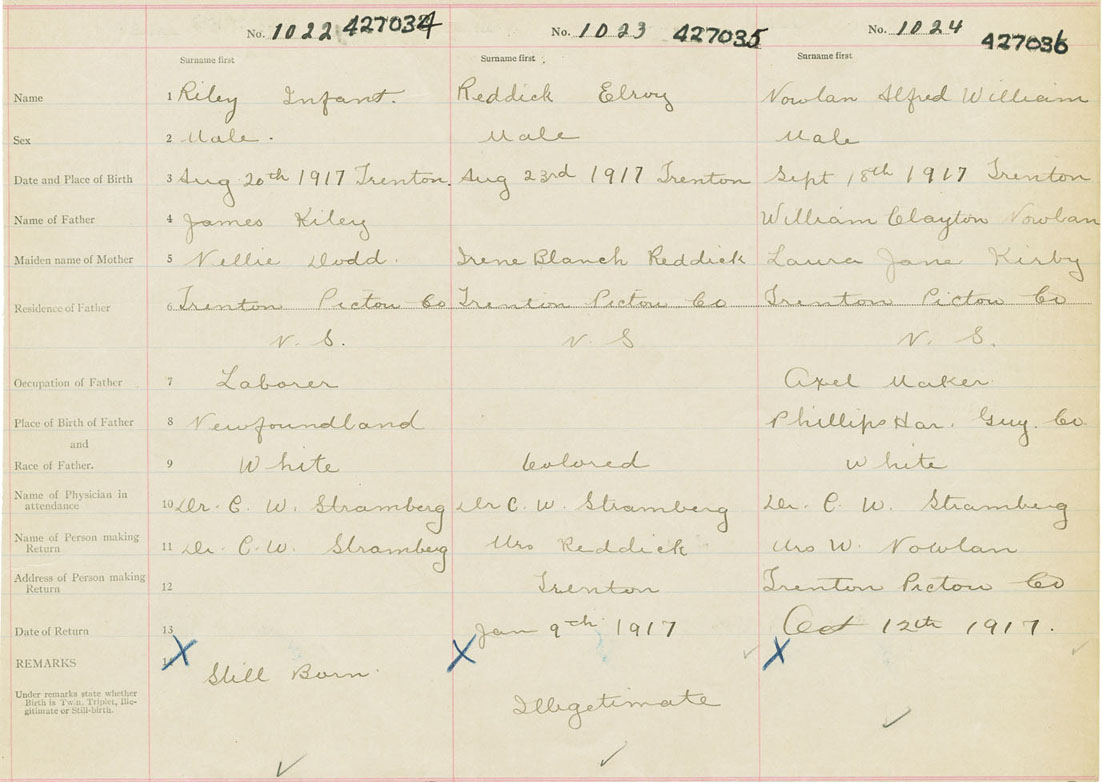 No. 1022 427034 No. 1023 427035 No. 1024 427036
Surname first Surname first Surname first
Name 1 Riley Infant. Reddick Elroy Nowlan Alfred William
Sex 2 Male. Male Male
Date and Place of Birth 3 Aug 20th 1917 Trenton. Aug 23rd 1917 Trenton Sept 18th 1917 Trenton
Name of Father 4 James Riley William Clayton Nowlan
Maiden name of Mother 5 Nellie Dodd. Irene Blanch Reddick Laura Jane Kirby
Residence of Father 6 Trenton Pictou Co Trenton Pictou Co Trenton Pictou Co
N. S. N. S N. S.
Occupation of Father 7 Laborer Axel Maker
Place of Birth of Father 8 Newfoundland Phillips Har. Guy. Co.
and
Race of Father. 9 White Colored White
Name of Physician in
attendance 10 Dr. C. W. Stramberg Dr C. W. Stramberg Dr. C. W. Stramberg
Name of Person making
Return 11 Dr. C. W. Stramberg Mrs Reddick Mrs W. Nowlan
Address of Person making
Return 12 Trenton Trenton Pictou Co
Date of Return 13 Jan 9th 1917 Oct 12th 1917.
REMARKS 14 Still Born.
Under remarks state whether
Birth is Twin, Triplet, Ille-
gitimate or Still-birth. Illegetimate